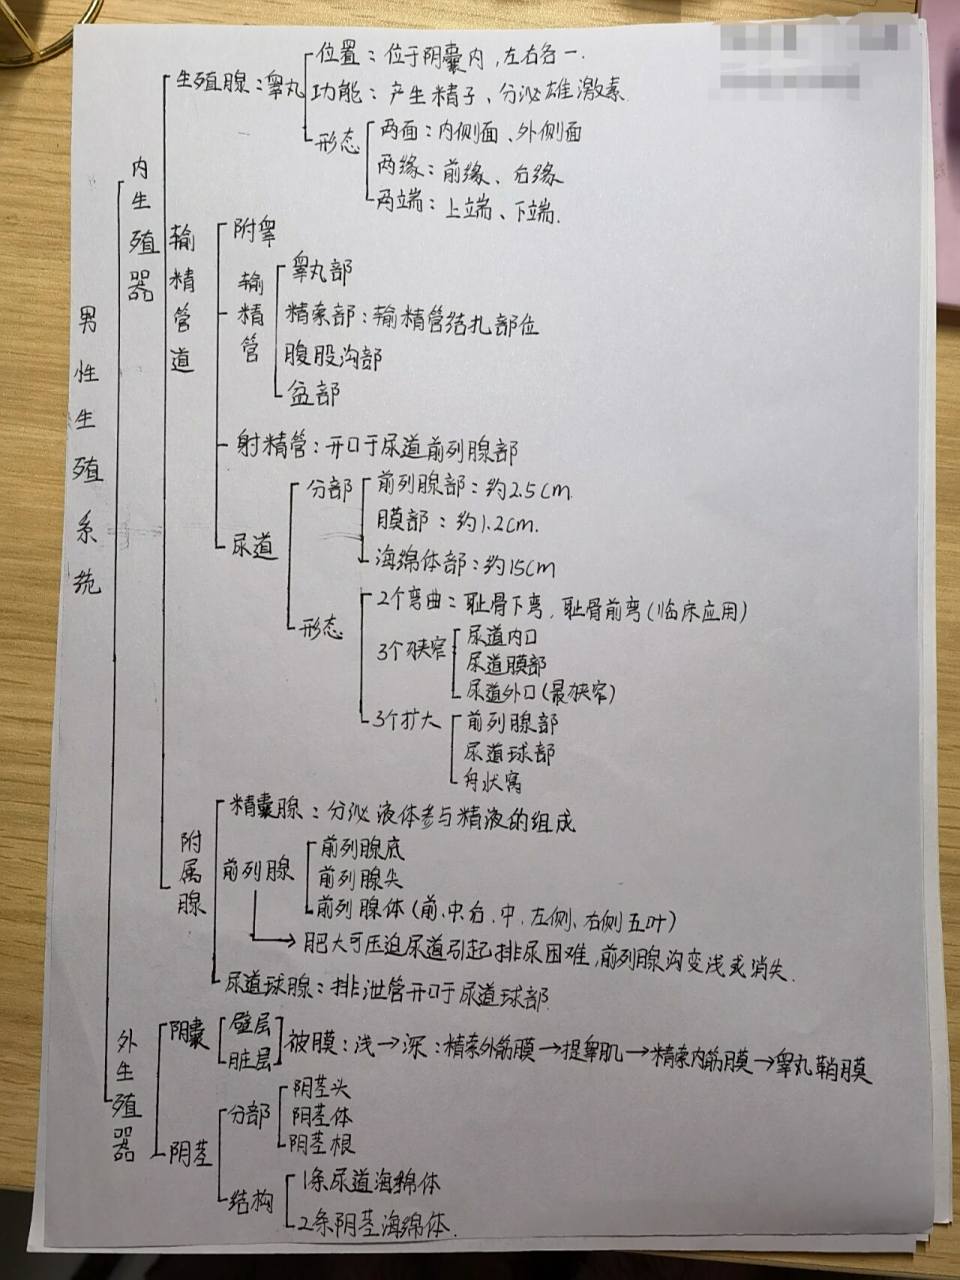 男性生殖系统
内生殖器
生殖腺：睾丸
位置：位于阴囊内，左右各一.
功能：产生精子、分泌雄激素
形态
两面：内侧面、外侧面
两缘：前缘、右缘
两端：上端、下端.
输精管道
附睾
输精管
睾丸部
精索部：输精管结扎部位
腹股沟部
盆部
射精管：开口于尿道前列腺部
尿道
分部
前列腺部：约2.5cm.
膜部：约1.2cm.
海绵体部：约15cm
形态
2个弯曲：耻骨下弯，耻骨前弯(临床应用)
3个狭窄
尿道内口
尿道膜部
尿道外口(最狭窄)
3个扩大
前列腺部
尿道球部
舟状窝
附属腺
精囊腺：分泌液体参与精液的组成
前列腺
前列腺底
前列腺尖
前列腺体(前、中右、中、左侧、右侧五叶)
→肥大可压迫尿道引起排尿困难，前列腺沟变浅或消失.
尿道球腺：排泄管开口于尿道球部.
外生殖器
阴囊
壁层
脏层
被膜：浅→深：精索外筋膜→提睾肌→精索内筋膜→睾丸鞘膜
阴茎
分部
阴茎头
阴茎体
阴茎根
结构
1条尿道海绵体
2条阴茎海绵体.